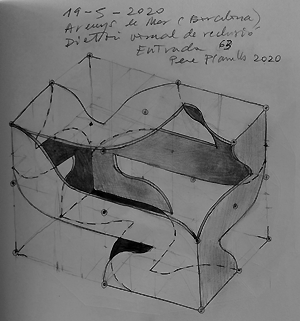 19-5-2020
Arenys de Mar (Barcelona)
Disseny visual de reclusió
Entrada 6B
Pere Planells 2020